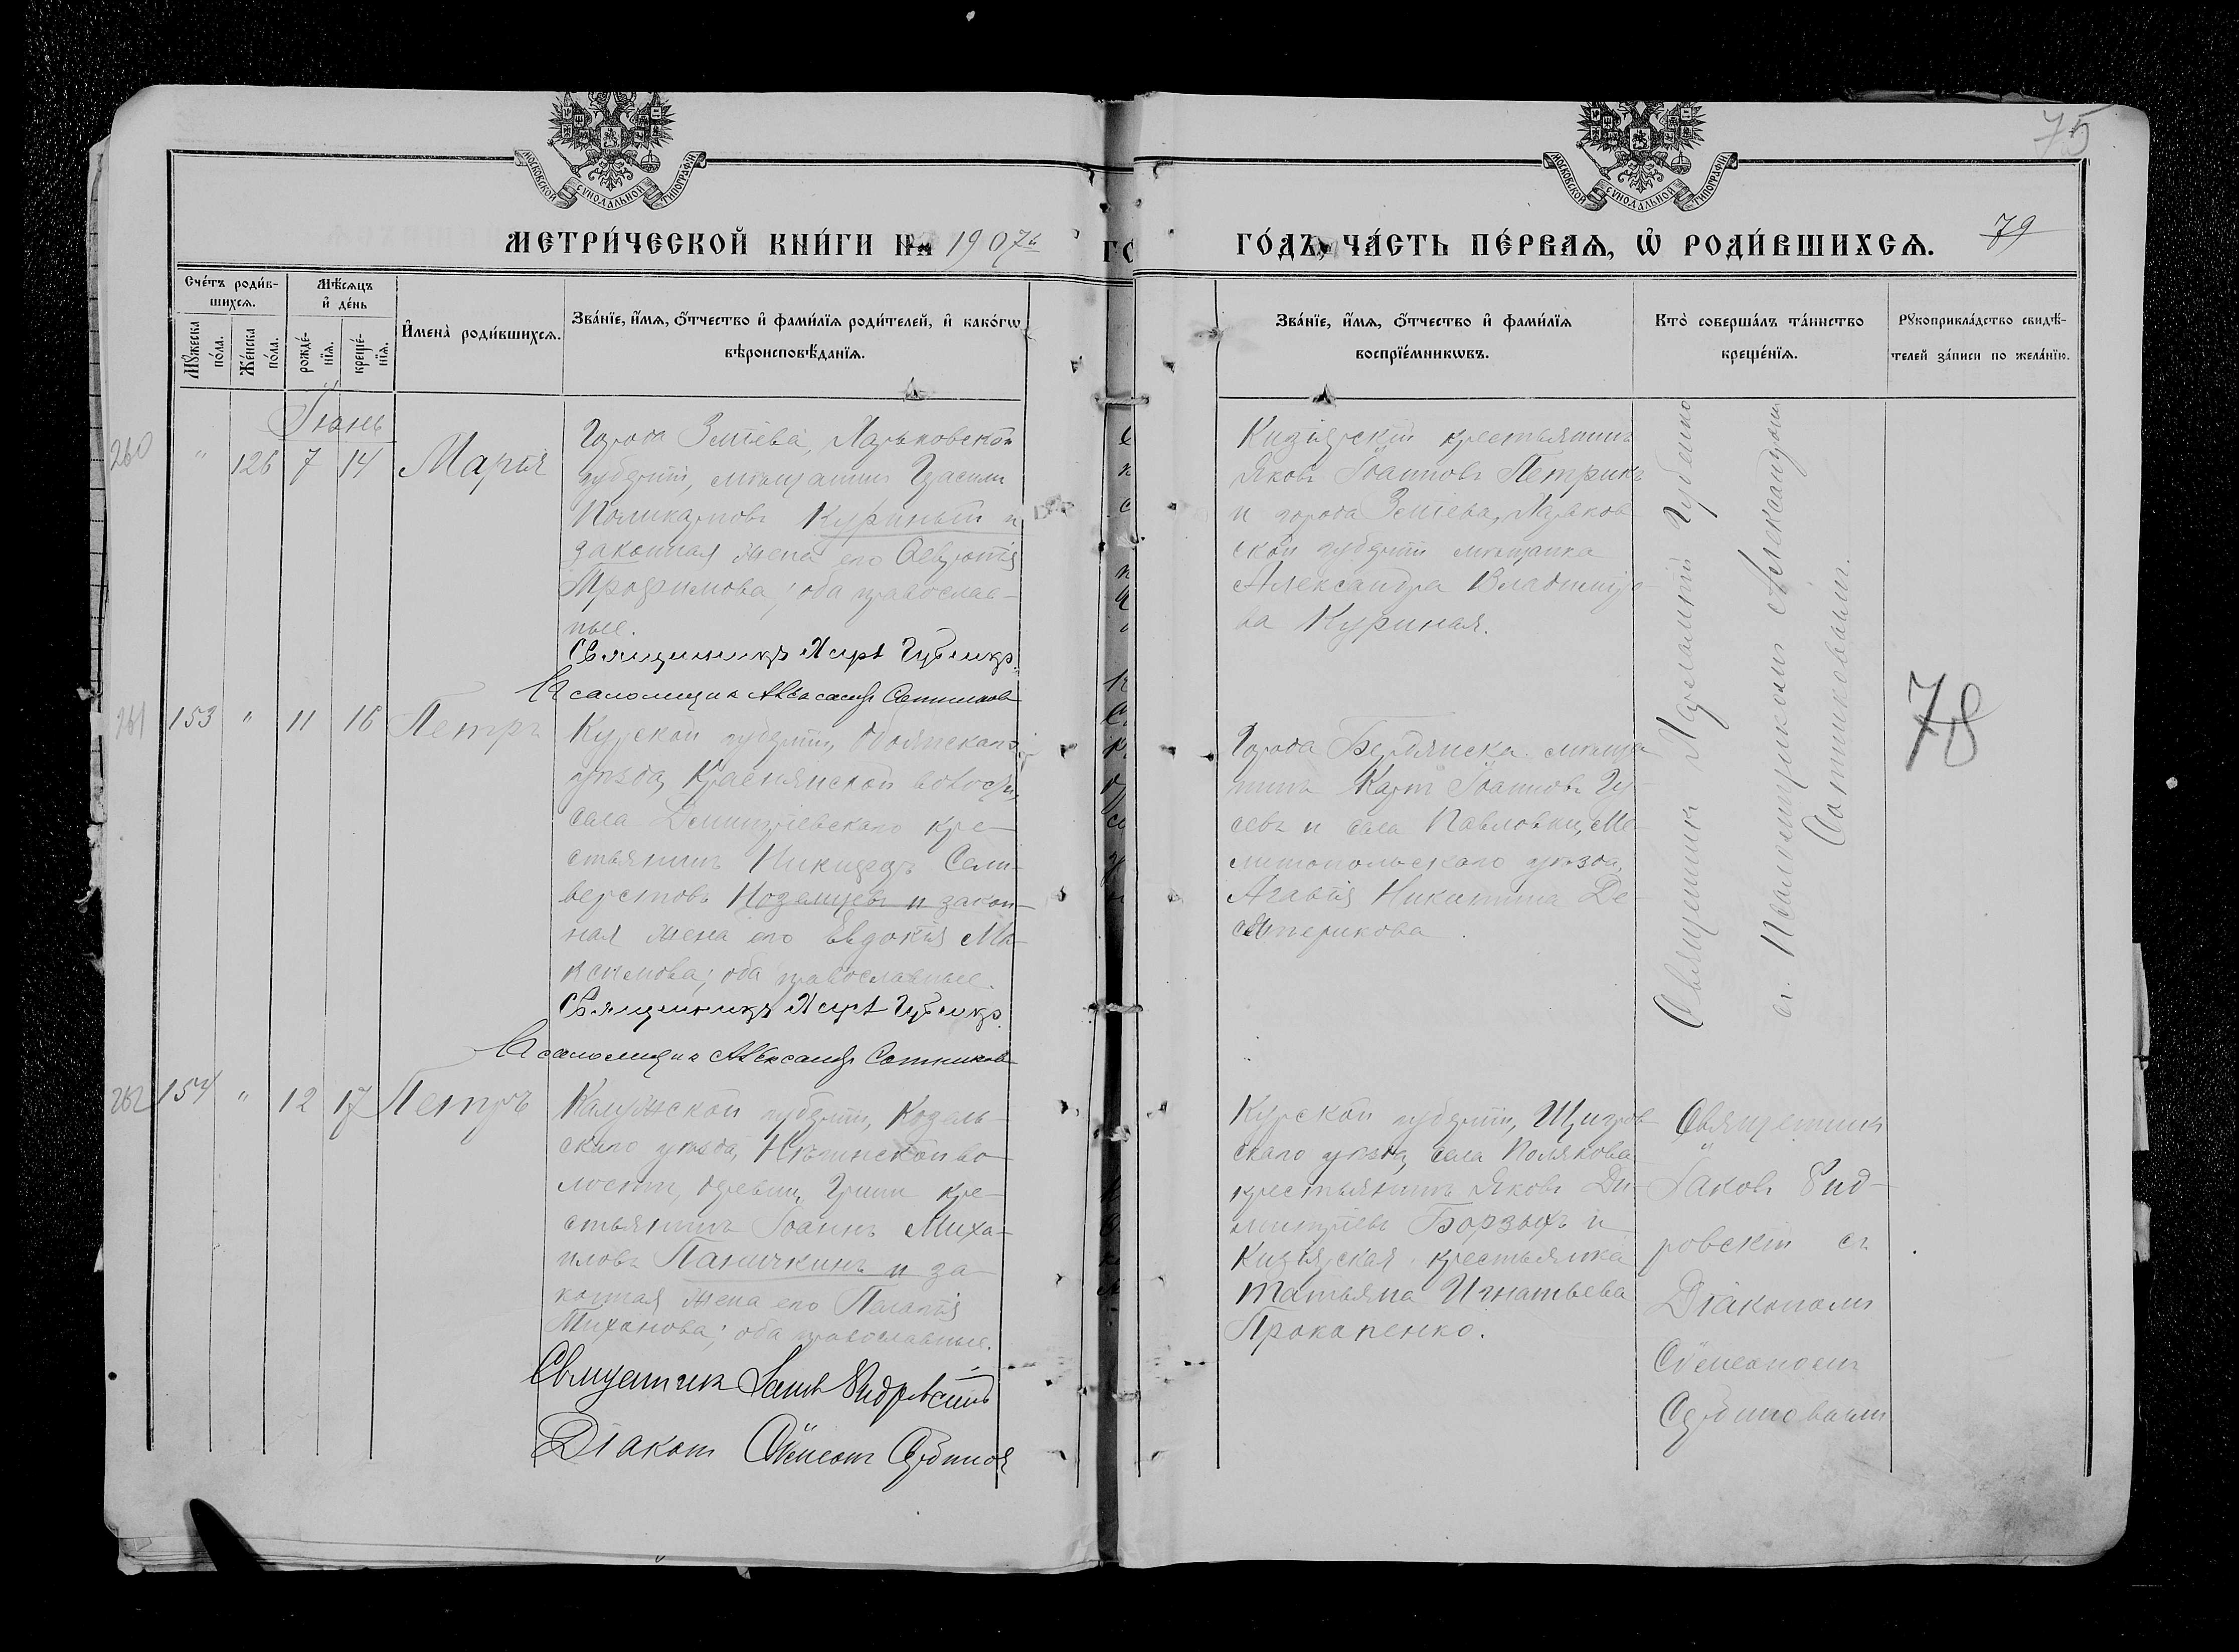 75
МОСКОВСКОЙ СѴНОДАЛЬНОЙ ТИПОГРАФІИ
МОСКОВСКОЙ СѴНОДАЛЬНОЙ ТИПОГРАФІИ
МЕТРИ́ЧЕСКОЙ КНИ́ГИ На 1907й
ГО́ДЪ, ЧА́СТЬ ПЕ́РВАѦ, Ѡ҆ РОДИ́ВШИХСѦ.
79
Сче́тъ роди́в-
шихсѧ.
Мꙋ́жеска по́ла.
Же́нска по́ла.
Мѣ́сѧцъ
и҆ де́нь
рожде́-
нїѧ.
креще́-
нїѧ.
И҆мена̀ роди́вшихсѧ.
Зва́нїе, и҆́мѧ, ѻ҆́тчество и҆ фами́лїѧ роди́телей, и҆ како́гѡ
вѣроисповѣ́данїѧ.
Зва́нїе, и҆́мѧ, ѻ҆́тчество и҆ фами́лїѧ
воспрїе́мникѡвъ.
Кто̀ соверша́лъ та́инство
креще́нїѧ.
Рꙋкоприкла́дство свидѣ́-
телей за́писи по жела́нїю.
Іюнь
260 " 126 7 14 Марія
Города Зміева, Харьковской
губерніи, мѣщанинъ
Поликарповъ Куриный и
законная жена его
Трофимова; оба православ-
ные.
Священникъ Губенко.
Псаломщикъ Александръ Сотниковъ
Кизіярскій крестьянинъ
Яковъ Іоанновъ Петрикъ
и города Зміева, Харьков
ской губерніи мѣщанка
Александра Владиміро-
ва Куриная.
Священникъ Губенко
съ Псаломщикомъ Александромъ
Сотниковымъ.
261 153 " 11 16 Петръ
Курской губерніи, Обоянскаго
уѣзда, Краснянской волости,
села Дмитріевскаго кре-
стьянинъ Никифоръ Сели-
верстовъ и закон-
ная жена его Евдокія Ма-
ксимова; оба православные.
Священникъ Губенко.
Псаломщикъ Александръ Сотниковъ
Города Бердянска мѣща
нинъ Іоанновъ Гу-
севъ и села Павловки, Ме-
литопольскаго уѣзда,
Агафія Никитина Де-
78
262 154 " 12 17 Петръ
Калужской губерніи, Козель-
скаго уѣзда, во-
лости, деревни кре-
стьянинъ Іоаннъ Миха-
иловъ Паничкинъ и за-
конная жена его Пелагія
Тиханова; оба православные.
Священникъ
Діаконъ Симеонъ
Курской губерніи, Щигров-
скаго уѣзда, села Полякова
крестьянинъ Яковъ Ди-
митріевъ Борзыхъ и
Кизіярская крестьянка
Татьяна Игнатьева
Прокапенко.
Священникъ
Іаковъ
ровскій съ
Діакономъ
Симеономъ